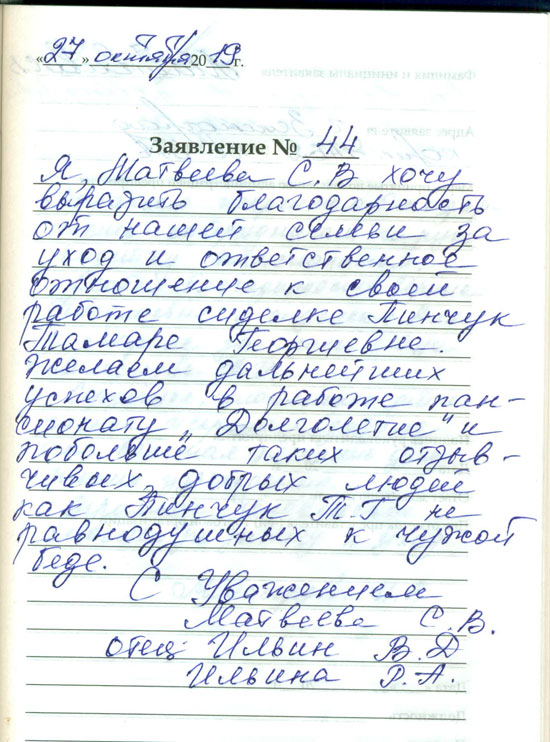 «27» октября 2019 г.
Заявление № 44
Я, Матвеева С.В хочу
выразить благодарность
от нашей семьи за
уход и ответственное
отношение к своей
работе сиделке Пинчук
Тамаре Георгиевне.
Желаем дальнейших
успехов в работе пан-
сионату „Долголетие" и
побольше таких отзыв-
чивых, добрых людей
как Пинчук Т.Г не
равнодушных к чужой
беде.
С Уважением
Матвеева С.В.
отец: Ильин В.Д
Ильина Р.А.